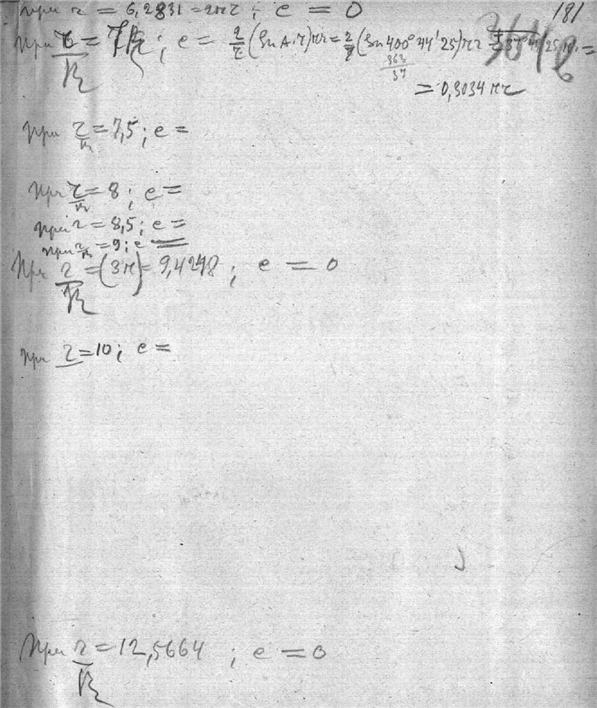 при r = 6,2831 = 2πr ; e = 0 181
при r/R = 7 ; e = 2/r (Sin A.r)πr = 2/7 (Sin 400° 44' 25)πr =
= 0,3034 πr
при r/R = 7,5 ; e =
при r/R = 8 ; e =
при r = 8,5 ; e =
при r/R = 9 ; e =
при r/R = (3π) = 9,4248 ; e = 0
при r = 10 ; e =
при r/R = 12,5664 ; e = 0